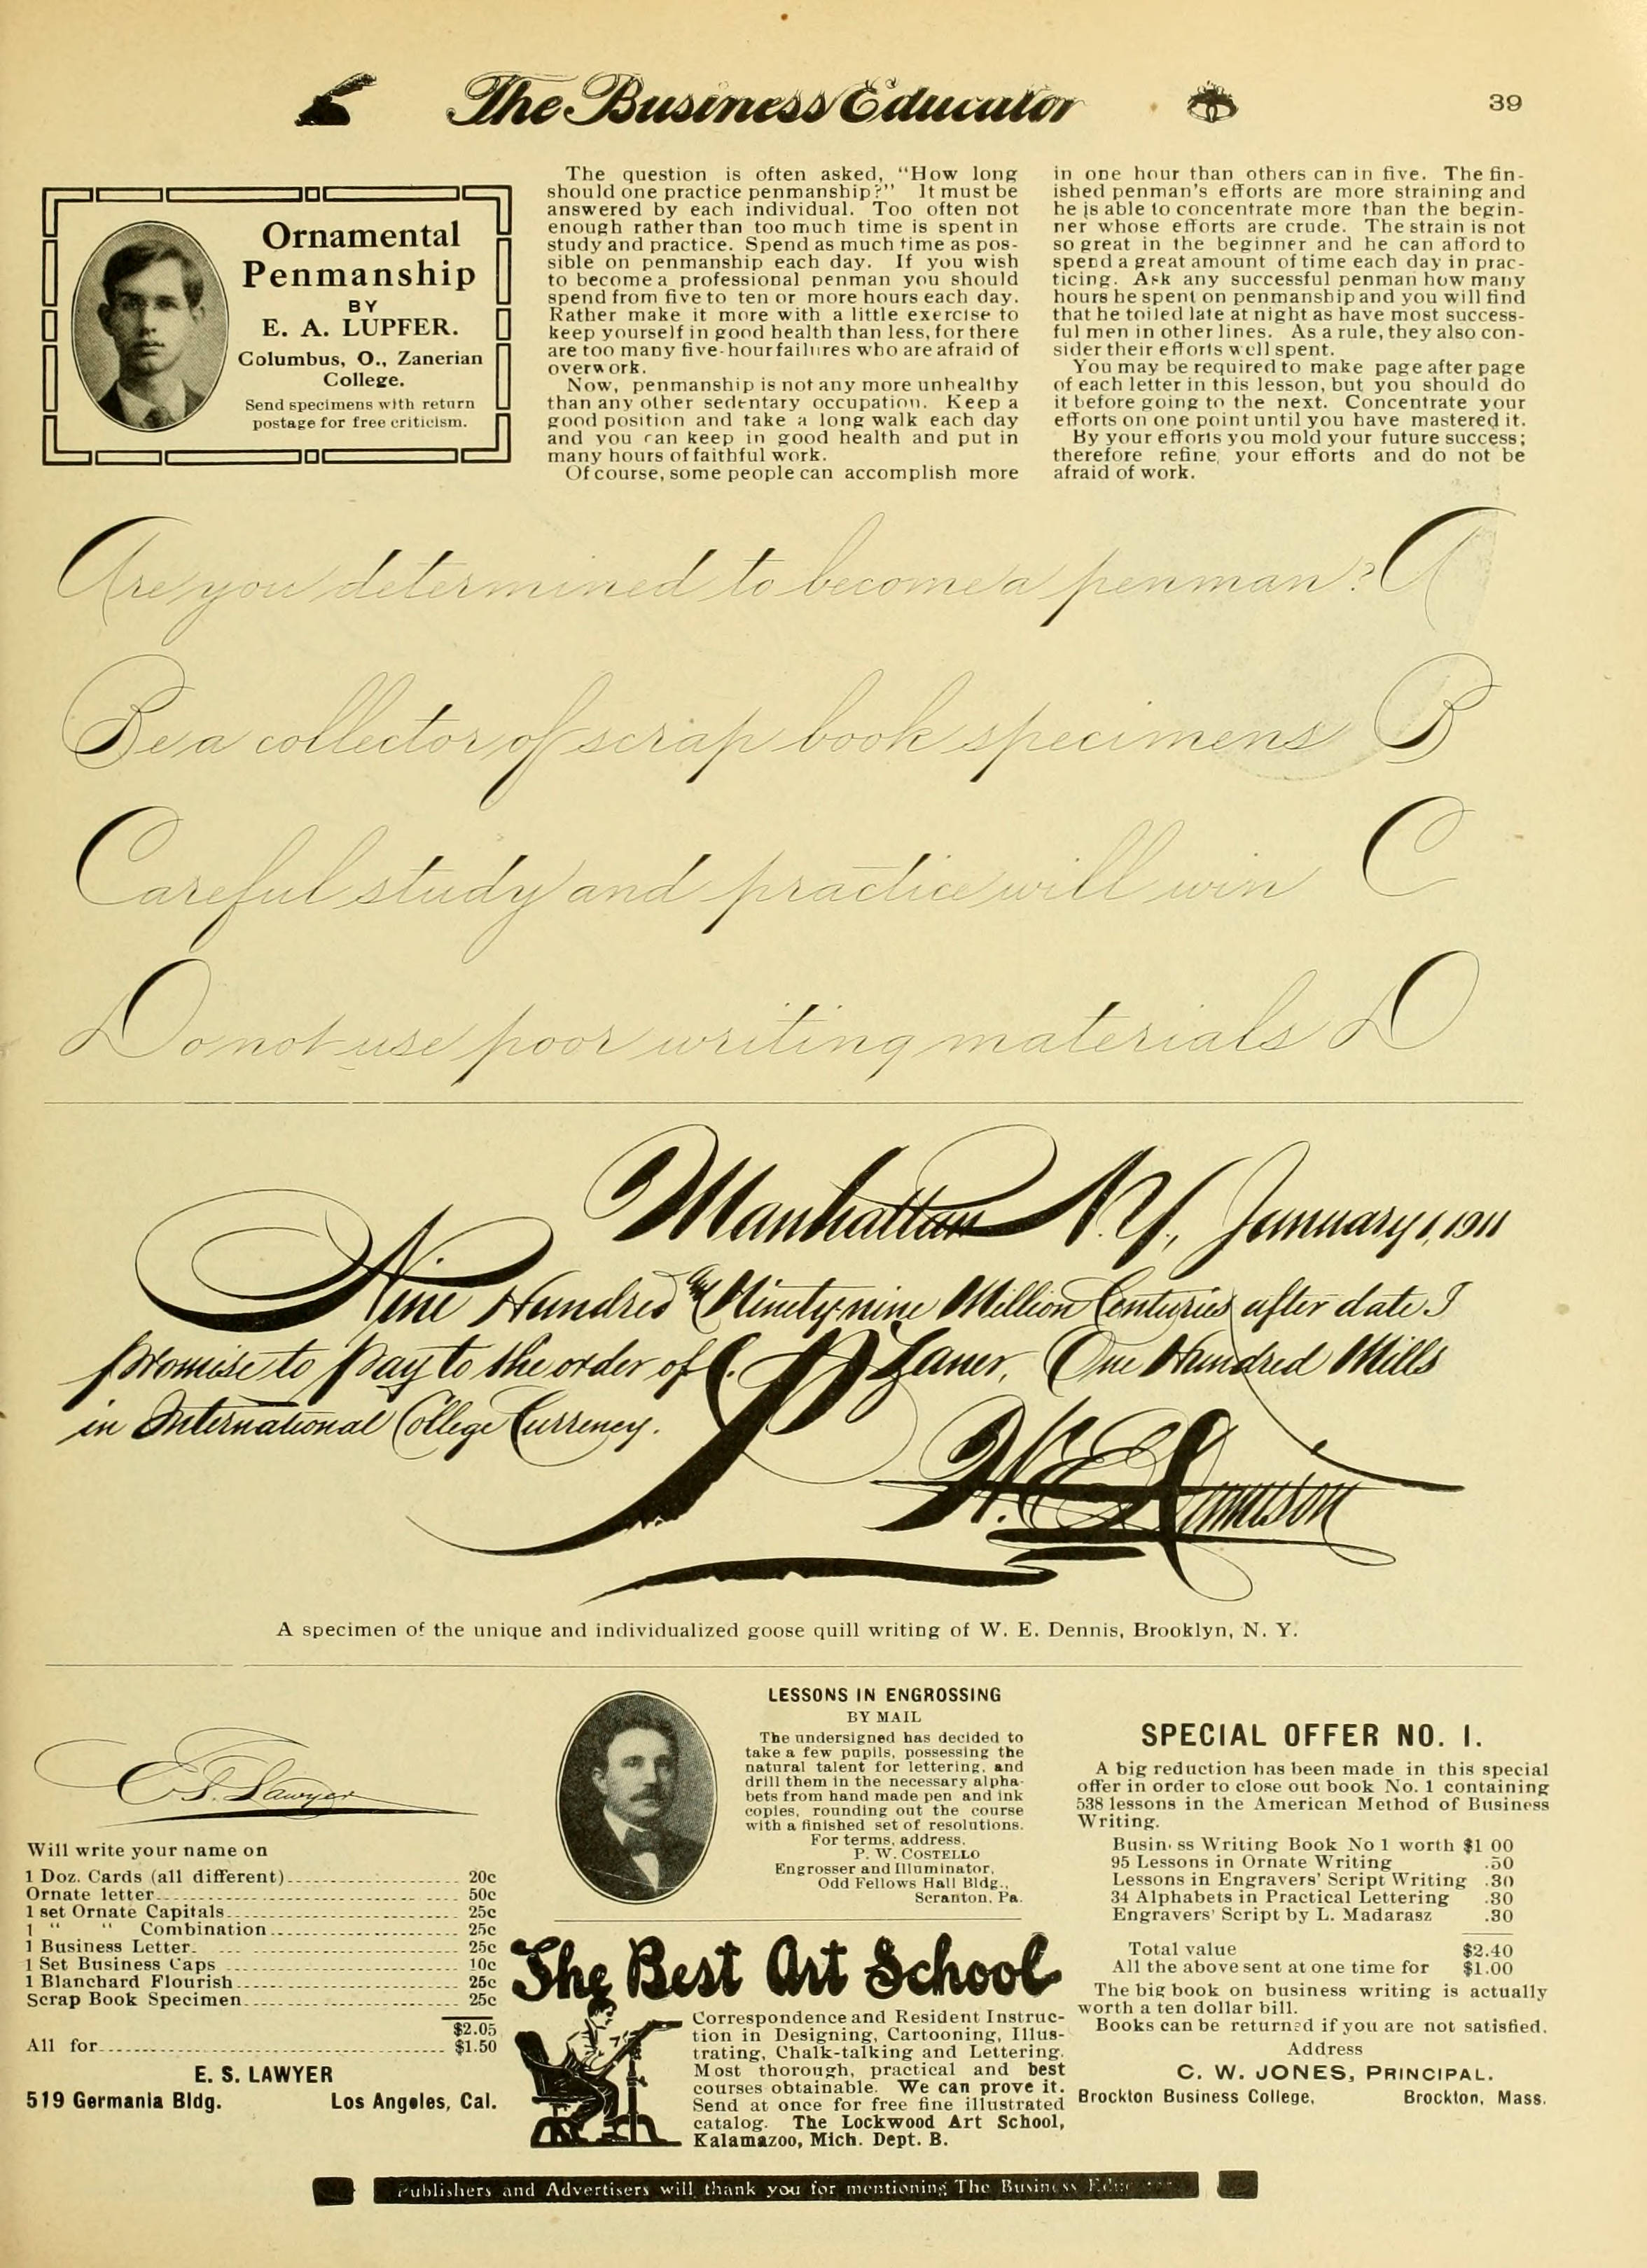 The Business Educator
39
Ornamental
Penmanship
BY
E. A. LUPFER.
Columbus, O., Zanerian
College.
Send specimens with return
postage for free criticism.
The question is often asked, "How long
should one practice penmanship?" It must be
answered by each individual. Too often not
enough rather than too much time is spent in
study and practice. Spend as much time as pos-
sible on penmanship each day. If you wish
to become a professional penman you should
spend from five to ten or more hours each day.
Rather make it more with a little exercise to
keep yourself in good health than less, for there
are too many five-hour failures who are afraid of
overwork.
Now, penmanship is not any more unhealthy
than any other sedentary occupation. Keep a
good position and take a long walk each day
and you can keep in good health and put in
many hours of faithful work.
Of course, some people can accomplish more
in one hour than others can in five. The fin-
ished penman's efforts are more straining and
he is able to concentrate more than the begin-
ner whose efforts are crude. The strain is not
so great in the beginner and he can afford to
spend a great amount of time each day in prac-
ticing. Ask any successful penman how many
hours he spent on penmanship and you will find
that he toiled late at night as have most success-
ful men in other lines. As a rule, they also con-
sider their efforts well spent.
You may be required to make page after page
of each letter in this lesson, but you should do
it before going to the next. Concentrate your
efforts on one point until you have mastered it.
By your efforts you mold your future success;
therefore refine, your efforts and do not be
afraid of work.
Are you determined to become a penman? A
Be a collector of scrap book specimens B
Careful study and practice will win C
Do not use poor writing materials D
Manhattan N.Y., January 1, 1911
Nine Hundred and Ninety-nine Million Centuries after date I
promise to pay to the order of C. P. Zaner, One Hundred Mills
in International College Currency.
W. E. Dennison
A specimen of the unique and individualized goose quill writing of W. E. Dennis, Brooklyn, N. Y.
E. S. Lawyer
Will write your name on
1 Doz. Cards (all different) 20c
Ornate letter 50c
1 set Ornate Capitals 25c
1 " " Combination 25c
1 Business Letter 25c
1 Set Business Caps 10c
1 Blanchard Flourish 25c
Scrap Book Specimen 25c
$2.05
All for $1.50
E. S. LAWYER
519 Germania Bldg. Los Angeles, Cal.
LESSONS IN ENGROSSING
BY MAIL
The undersigned has decided to
take a few pupils, possessing the
natural talent for lettering, and
drill them in the necessary alpha-
bets from hand made pen and ink
copies, rounding out the course
with a finished set of resolutions.
For terms, address,
P. W. COSTELLO
Engrosser and Illuminator,
Odd Fellows Hall Bldg.,
Scranton, Pa.
The Best Art School
Correspondence and Resident Instruc-
tion in Designing, Cartooning, Illus-
trating, Chalk-talking and Lettering.
Most thorough, practical and best
courses obtainable. We can prove it.
Send at once for free fine illustrated
catalog. The Lockwood Art School,
Kalamazoo, Mich. Dept. B.
SPECIAL OFFER NO. I.
A big reduction has been made in this special
offer in order to close out book No. 1 containing
538 lessons in the American Method of Business
Writing.
Business Writing Book No 1 worth $1 00
95 Lessons in Ornate Writing .50
Lessons in Engravers' Script Writing .30
34 Alphabets in Practical Lettering .30
Engravers' Script by L. Madarasz .30
Total value $2.40
All the above sent at one time for $1.00
The big book on business writing is actually
worth a ten dollar bill.
Books can be returned if you are not satisfied.
Address
C. W. JONES, PRINCIPAL.
Brockton Business College, Brockton, Mass.
Publishers and Advertisers will thank you for mentioning The Business